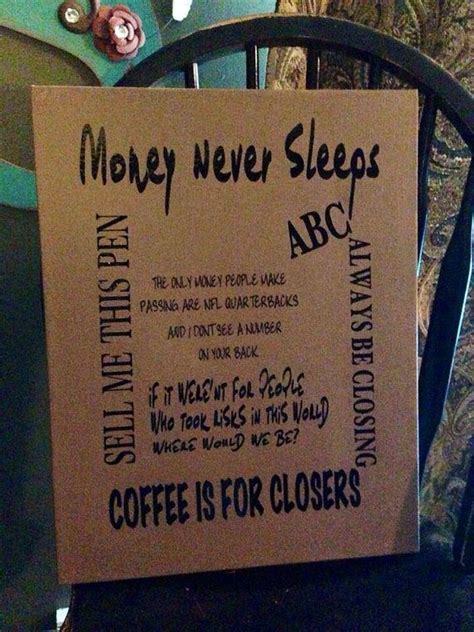 Money Never Sleeps
SELL ME THIS PEN
ABC
ALWAYS BE CLOSING
THE ONLY MONEY PEOPLE MAKE
PASSING ARE NFL QUARTERBACKS
AND I DONT SEE A NUMBER
ON YOUR BACK
iF iT WERE'NT FOR PEOPLE
WHO TOOK RISKS IN THIS WORLD
WHERE WOULD WE BE?
COFFEE IS FOR CLOSERS